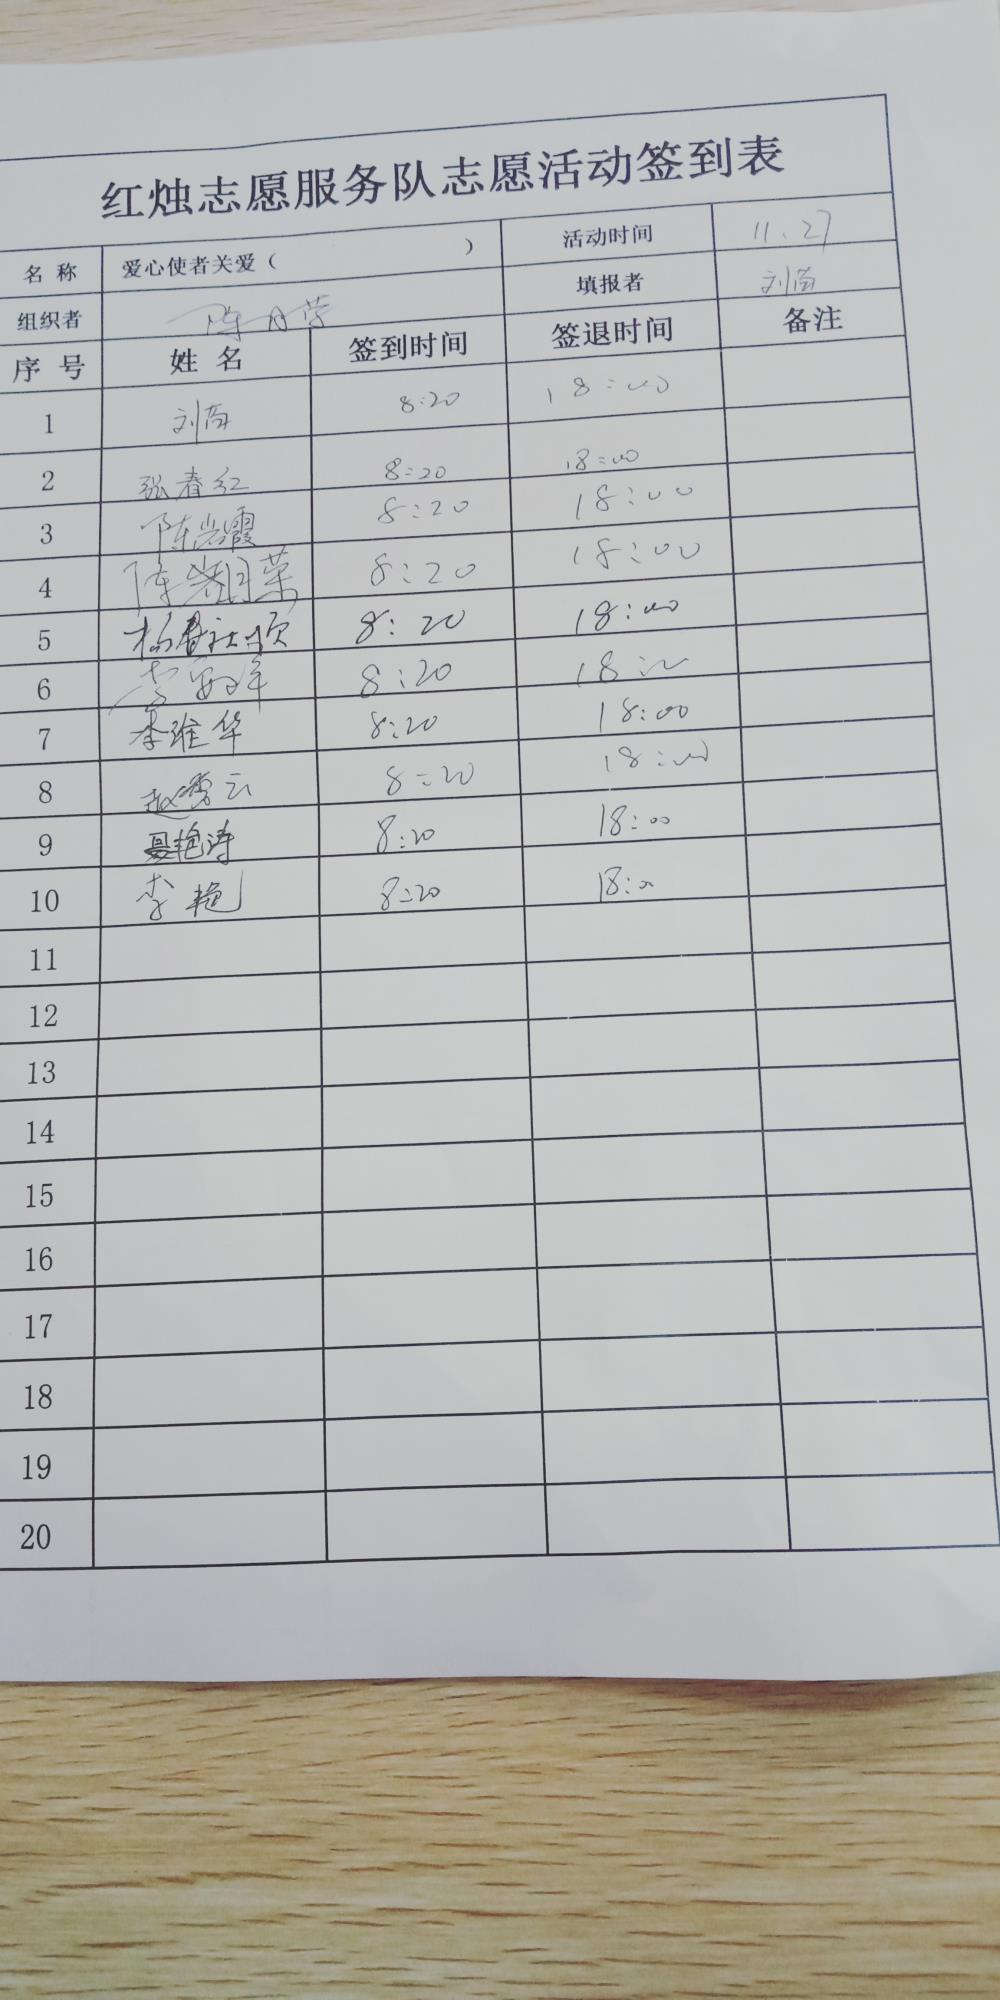 红烛志愿服务队志愿活动签到表
名 称 爱心使者关爱（ ） 活动时间 11.27
组织者 陈月荣 填报者 刘苗
序 号 姓 名 签到时间 签退时间 备注
1 刘苗 8:20 18:00
2 张春红 8:20 18:00
3 陈岩霞 8:20 18:00
4 陈 荣 8:20 18:00
5 杨 8:20 18:00
6 李 8:20 18:00
7 李维华 8:20 18:00
8 赵秀云 8:20 18:00
9 聂艳涛 8:20 18:00
10 李艳 8:20 18:00
11
12
13
14
15
16
17
18
19
20